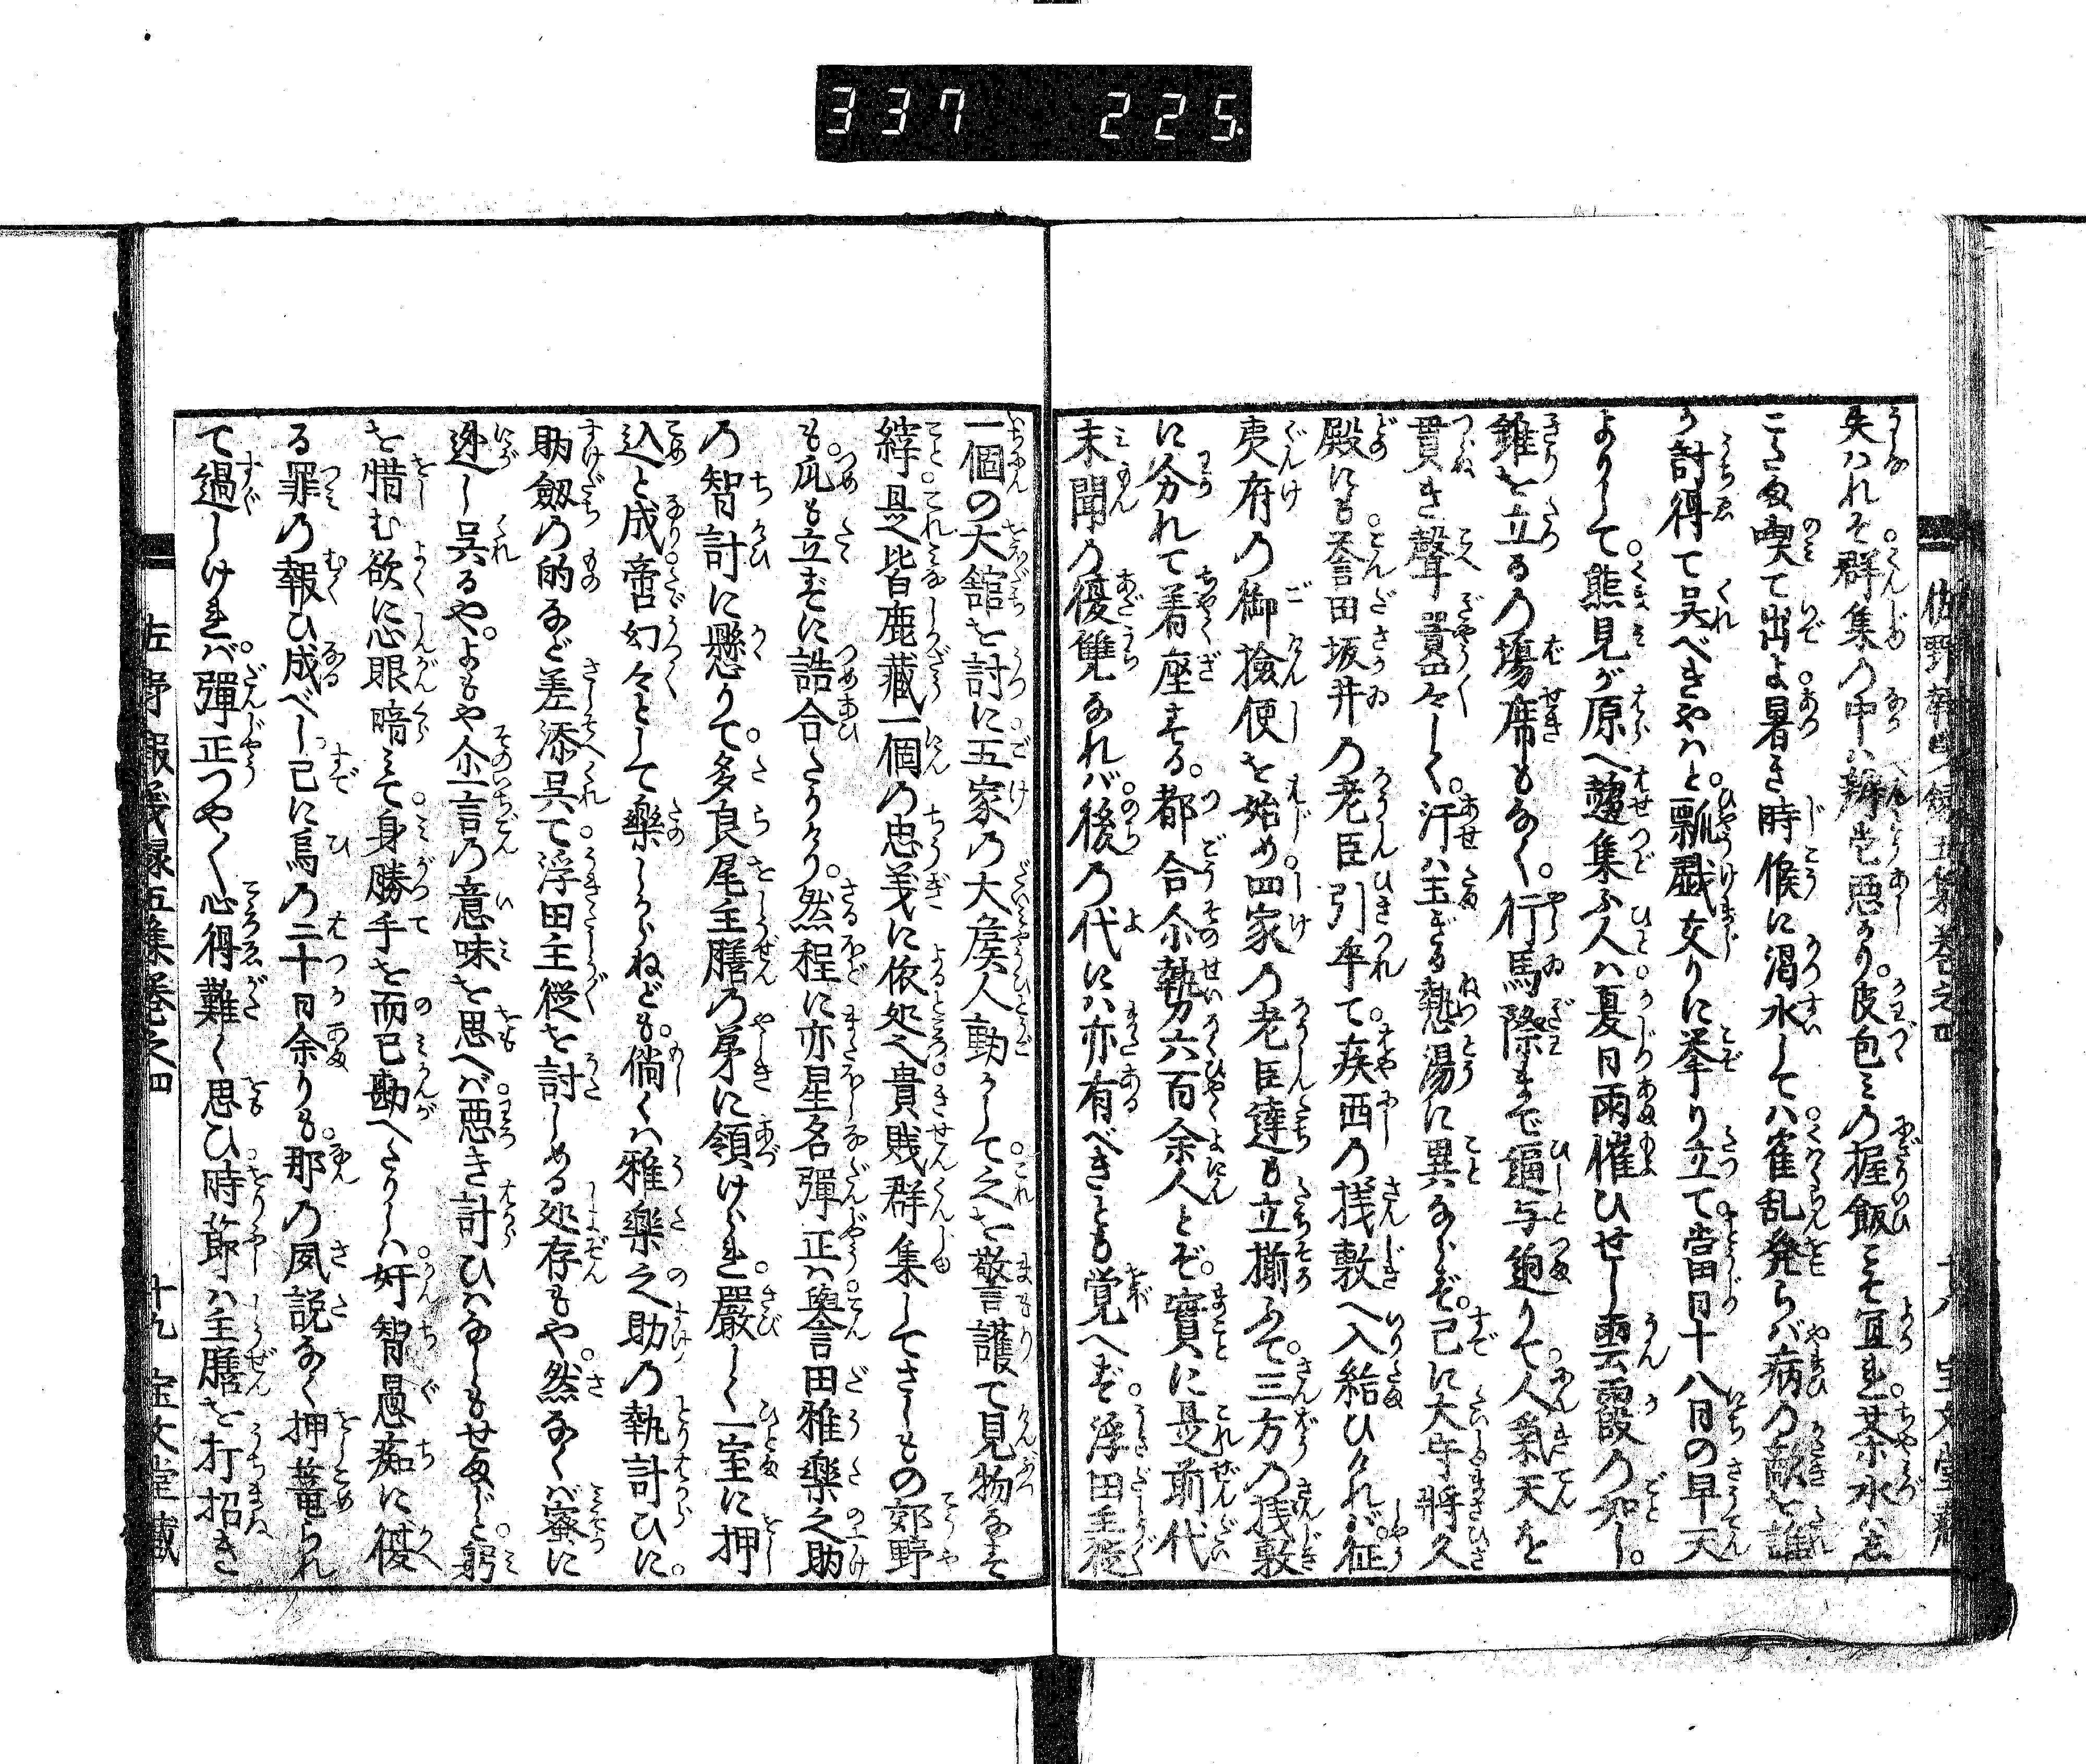 337 225
失ハれそ群集の中ハ辨当悪かり。皮包ミの握飯こそ宜れ。茶水ハ忘
こさぬ喫て出よ。暑き時候に渇水してハ。霍乱発らバ病の敵を誰
か討得て呉べきやハと。瓢戯交りに挙り立て。当日十八日の早天
よりして。熊見が原へ趨集ふ人ハ。夏日雨催ひせし雲霞の如し。
錐を立るの場席もなく。行馬際まで逼与迫りて。人氣天を
貫き聲囂々しく。汗ハ玉ぎる熱湯に異ならぞ。已に大守将久
殿にも。誉田坂井の老臣引卒て。疾西の桟敷へ入給ひけれバ。征
夷府の御撿使を始め。四家の老臣達も立揃ふて。三方の桟敷
に分れて着座する。都合尒勢六百余人とぞ。實に是前代
未聞の復讐なれバ。後の代にハ亦有べきとも覚へず。浮田主従
一個の大舘を討に。五家の大矦人動かして。之を警護て見物なす
縡。是皆鹿藏一個の忠義に依処也。貴賎群集してさしもの郊野
も。爪も立ずに詰合たりけり。然程に亦星名彈正ハ。誉田雅樂之助
の智計に懸りて。多良尾主膳の第に領けられ。嚴しく一室に押
込と成。帝幻々として樂しからねども。倘くハ雅樂之助の執計ひに。
助劔の的など差添呉て。浮田主從を討しめる処存もや。然なくバ蜜に
迯し呉るや。よもや尒一言の意味を思へバ。悪き計ひハなしもせぬと。躬
を惜む欲に心眼暗ミて。身勝手を而已勘へたりしハ。奸智愚痴に復
る罪の報ひ成べし。已に爲の二十日余りも。那の夙説なく押篭られ
て過しけれバ。彈正つや〳〵心得難く思ひ。時節ハ主膳を打招き
佐野報義録五集巻之四 十八 宝文堂藏
佐野報義録五集巻之四 十九 宝文堂藏